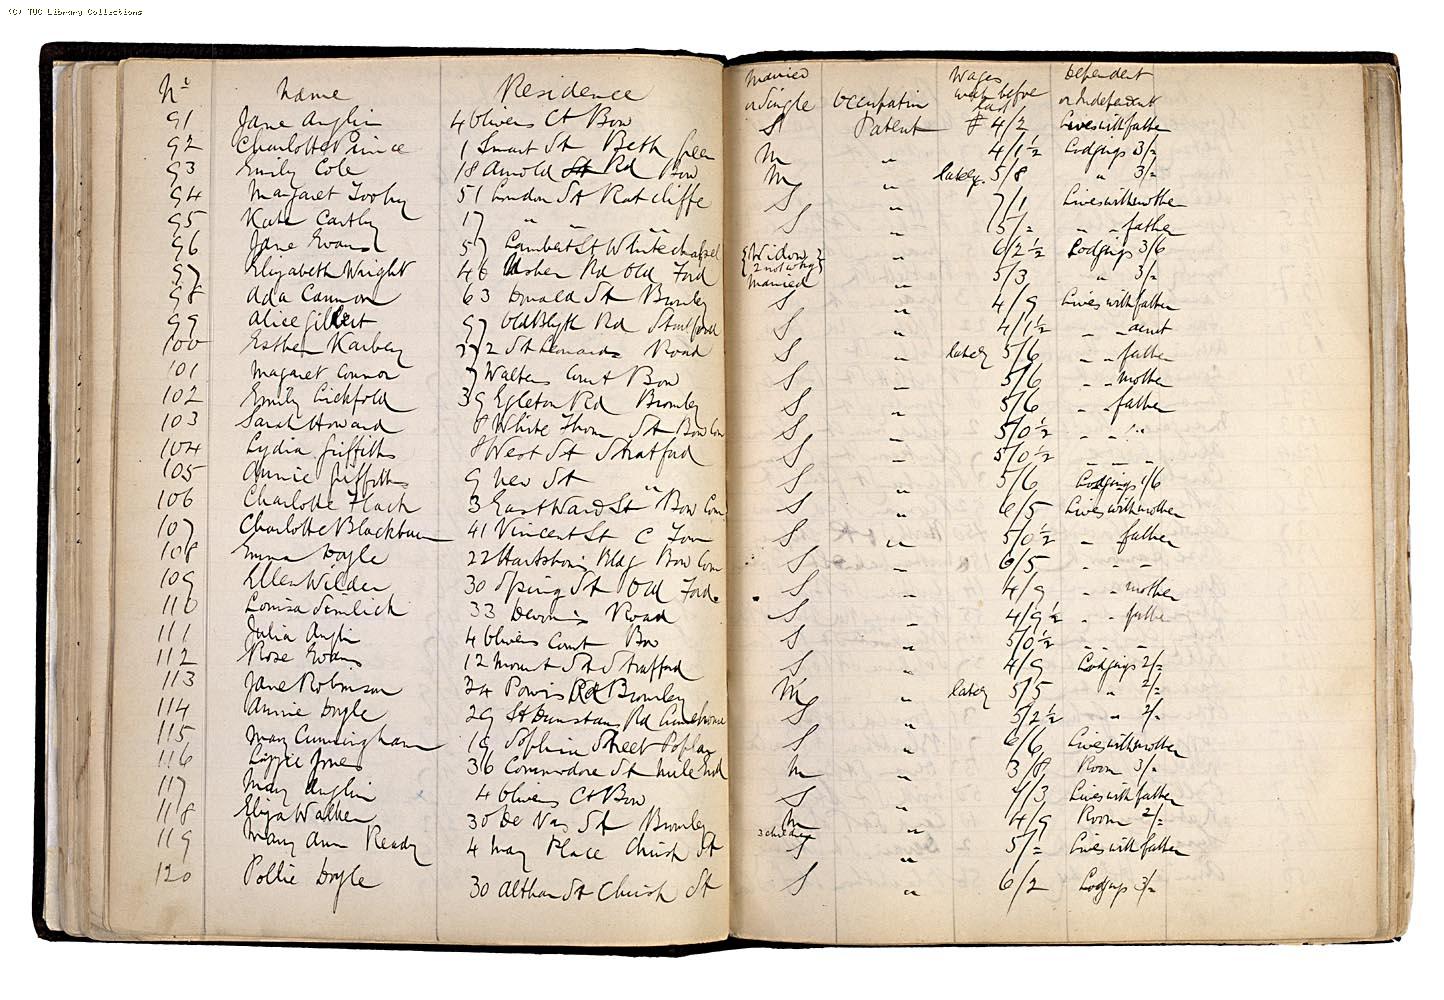 (C) TUC Library Collections
No Name Residence Married or Single Occupation Wages week before last Dependent or Independent
91 Jane Anglin 4 Olivers Ct Bow S Patent # 4/2 Lives with father
92 Charlotte Prince 1 Smart St Beth Green M " 4/1½ Lodgings 3/=
93 Emily Cole 18 Arnold St Rd Bow M " lately 5/8 " 3/=
94 Margaret Tooley 51 London St Ratcliffe S " 7/1 Lives with mother
95 Kate Cartly 17 " " S " 5/= " " father
96 Jane Evans 57 Lambert St Whitechapel {Widow 2 not wkg} " 6/2½ Lodgings 3/6
97 Elizabeth Wright 46 Usher Rd Old Ford Married " 5/3 " 3/=
98 Ada Cannon 63 Donald St Bromley S " 4/9 Lives with father
99 Alice Gilbert 97 Old Rd Stratford S " 4/1½ " " aunt
100 Esther 272 St Leonards Road S " lately 5/6 " " father
101 Magaret Connor 7 Walters Court Bow S " 5/6 " " mother
102 Emily Lickfold 39 Egleton Rd Bromley S " 5/6 " " father
103 Sarah Howard 8 White Thorn St Bow Com S " 5/0½ " " "
104 Lydia Griffiths 8 West St Stratford S " 5/0½ " " "
105 Annie Griffiths 9 New St " S " 5/6 Lodgings 1/6
106 Charlotte Flack 3 Eastward St Bow Com S " 6/5 Lives with mother
107 Charlotte Blackburn 41 Vincent St C Town S " 5/0½ " father
108 Emma Doyle 22 Bldg Bow Com S " 6/5 " " "
109 Ellen Wilder 30 Spring St Old Ford S " 4/9 " " mother
110 Louisa 33 Devons Road S " 4/9½ " " father
111 Julia Anglin 4 Olivers Court Bow S " 5/0½ " " "
112 Rose Evans 12 Mount St Stratford S " 4/9 Lodgings 2/=
113 Jane Robinson 24 Powis Rd Bromley M " lately 5/5 " 2/=
114 Annie Doyle 29 St Dunstans Rd S " 5/2½ " 2/=
115 May Cunningham 19 Sophia Street Poplar S " 6/6 Lives with mother
116 Lizzie Jones 36 Commodore St Mile End M " 3/8 Room 3/=
117 May Anglin 4 Olivers Ct Bow S " 4/3 Lives with father
118 Eliza Walker 30 De Vas St Bromley M 3 children " 4/9 Room 2/=
119 Mary Ann Ready 4 May Place Church St S " 5/= Lives with father
120 Pollie Doyle 30 St Church St S " 6/2 Lodgings 3/=